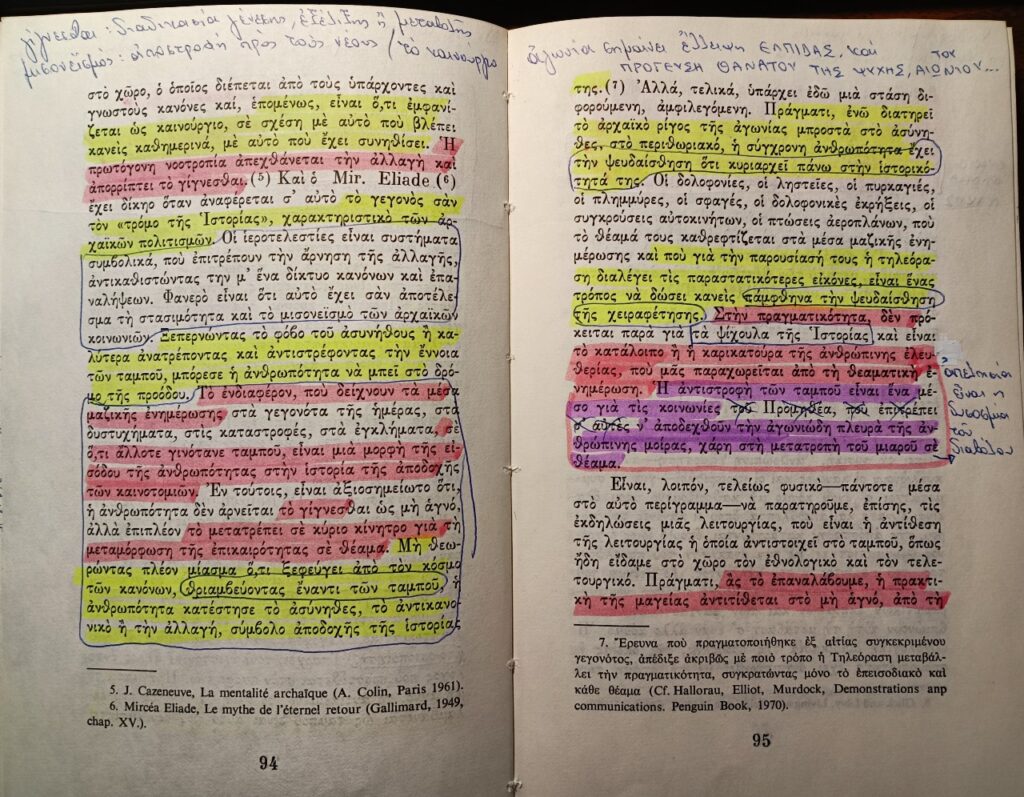 γίγνεσθαι: διαδικασία γένεσης, εξέλιξης ἢ μεταβολῆς
μισονεϊσμός: αποστροφή πρὸς τοὺς νέους / τὸ καινούργιο
στὸ χῶρο, ὁ ὁποῖος διέπεται ἀπὸ τοὺς ὑπάρχοντες καὶ
γνωστοὺς κανόνες καί, ἑπομένως, εἶναι ὅ,τι ἐμφανί-
ζεται ὡς καινούργιο, σὲ σχέση μὲ αὐτὸ ποὺ βλέπει
κανεὶς καθημερινά, μὲ αὐτὸ ποὺ ἔχει συνηθίσει. Ἡ
πρωτόγονη νοοτροπία ἀπεχθάνεται τὴν ἀλλαγὴ καὶ
ἀπορρίπτει τὸ γίγνεσθαι.(5) Καὶ ὁ Mir. Eliade (6)
ἔχει δίκηο ὅταν ἀναφέρεται σ' αὐτὸ τὸ γεγονὸς σὰν
τὸν «τρόμο τῆς Ἱστορίας», χαρακτηριστικὸ τῶν ἀρ-
χαϊκῶν πολιτισμῶν. Οἱ ἱεροτελεστίες εἶναι συστήματα
συμβολικά, ποὺ ἐπιτρέπουν τὴν ἄρνηση τῆς ἀλλαγῆς,
ἀντικαθιστώντας την μ' ἕνα δίκτυο κανόνων καὶ ἐπα-
ναλήψεων. Φανερὸ εἶναι ὅτι αὐτὸ ἔχει σὰν ἀποτέλε-
σμα τὴ στασιμότητα καὶ τὸ μισονεϊσμὸ τῶν ἀρχαϊκῶν
κοινωνιῶν. Ξεπερνώντας τὸ φόβο τοῦ ἀσυνήθους ἢ κα-
λύτερα ἀνατρέποντας καὶ ἀντιστρέφοντας τὴν ἔννοια
τῶν ταμποῦ, μπόρεσε ἡ ἀνθρωπότητα νὰ μπεῖ στὸ δρό-
μο τῆς προόδου. Τὸ ἐνδιαφέρον, ποὺ δείχνουν τὰ μέσα
μαζικῆς ἐνημέρωσης στὰ γεγονότα τῆς ἡμέρας, στὰ
δυστυχήματα, στὶς καταστροφές, στὰ ἐγκλήματα, σὲ
ὅ,τι ἄλλοτε γινότανε ταμπού, εἶναι μιὰ μορφὴ τῆς εἰ-
σόδου τῆς ἀνθρωπότητας στὴν ἱστορία τῆς ἀποδοχῆς
τῶν καινοτομιῶν. Ἐν τούτοις, εἶναι ἀξιοσημείωτο ὅτι,
ἡ ἀνθρωπότητα δὲν ἀρνεῖται τὸ γίγνεσθαι ὡς μὴ ἁγνό,
ἀλλὰ ἐπιπλέον τὸ μετατρέπει σὲ κύριο κίνητρο γιὰ τὴ
μεταμόρφωση τῆς ἐπικαιρότητας σὲ θέαμα. Μὴ θεω-
ρώντας πλέον μίασμα ὅ,τι ξεφεύγει ἀπὸ τὸν κόσμο
τῶν κανόνων, θριαμβεύοντας ἔναντι τῶν ταμποῦ, ἡ
ἀνθρωπότητα κατέστησε τὸ ἀσύνηθες, τὸ ἀντικανο-
νικὸ ἢ τὴν ἀλλαγή, σύμβολο ἀποδοχῆς τῆς ἱστορίας
5. J. Cazeneuve, La mentalité archaïque (A. Colin, Paris 1961).
6. Mircéa Eliade, Le mythe de l'éternel retour (Gallimard, 1949,
chap. XV.).
94
ἀγωνία σημαίνει ἔλλειψη ΕΛΠΙΔΑΣ, καὶ
ΠΡΟΓΕΥΣΗ ΘΑΝΑΤΟΥ ΤΗΣ ΨΥΧΗΣ, ΤΟΥ ΑΙΩΝΙΟΥ...
της.(7) Ἀλλά, τελικά, ὑπάρχει ἐδῶ μιὰ στάση δι-
φορούμενη, ἀμφιλεγόμενη. Πράγματι, ἐνῶ διατηρεῖ
τὸ ἀρχαϊκὸ ρίγος τῆς ἀγωνίας μπροστὰ στὸ ἀσύνη-
θες, στὸ περιθωριακό, ἡ σύγχρονη ἀνθρωπότητα ἔχει
τὴν ψευδαίσθηση ὅτι κυριαρχεῖ πάνω στὴν ἱστορικό-
τητά της. Οἱ δολοφονίες, οἱ ληστεῖες, οἱ πυρκαγιές,
οἱ πλημμύρες, οἱ σφαγές, οἱ δολοφονικὲς ἐκρήξεις, οἱ
συγκρούσεις αὐτοκινήτων, οἱ πτώσεις ἀεροπλάνων, ποὺ
τὸ θέαμά τους καθρεφτίζεται στὰ μέσα μαζικῆς ἐνη-
μέρωσης καὶ ποὺ γιὰ τὴν παρουσίασή τους ἡ τηλεόρα-
ση διαλέγει τὶς παραστατικότερες εἰκόνες, εἶναι ἕνας
τρόπος νὰ δώσει κανεὶς πάμφθηνα τὴν ψευδαίσθηση
τῆς χειραφέτησης. Στὴν πραγματικότητα, δὲν πρό-
κειται παρὰ γιὰ τὰ ψίχουλα τῆς Ἱστορίας καὶ εἶναι
τὸ κατάλοιπο ἢ ἡ καρικατούρα τῆς ἀνθρώπινης ἐλευ-
θερίας, ποὺ μᾶς παραχωρεῖται ἀπὸ τὴ θεαματικὴ ἐ-
νημέρωση. Ἡ ἀντιστροφὴ τῶν ταμποῦ εἶναι ἕνα μέ-
σο γιὰ τὶς κοινωνίες τοῦ Προμηθέα, ποὺ ἐπιτρέπει
σ' αὐτὲς ν' ἀποδεχθοῦν τὴν ἀγωνιώδη πλευρὰ τῆς ἀν-
θρώπινης μοίρας, χάρη στὴ μετατροπὴ τοῦ μιαροῦ σὲ
θέαμα.
ἀπελπισία
εἶναι ἡ
δυσοσμία
τοῦ
διαβόλου
Εἶναι, λοιπόν, τελείως φυσικὸ—πάντοτε μέσα
στὸ αὐτὸ περίγραμμα—νὰ παρατηροῦμε, ἐπίσης, τὶς
ἐκδηλώσεις μιᾶς λειτουργίας, ποὺ εἶναι ἡ ἀντίθεση
τῆς λειτουργίας ἡ ὁποία ἀντιστοιχεῖ στὸ ταμποῦ, ὅπως
ἤδη εἴδαμε στὸ χῶρο τὸν ἐθνολογικὸ καὶ τὸν τελε-
τουργικό. Πράγματι, ἂς τὸ ἐπαναλάβουμε, ἡ πρακτι-
κὴ τῆς μαγείας ἀντιτίθεται στὸ μὴ ἁγνό, ἀπὸ τὴ
7. Ἔρευνα ποὺ πραγματοποιήθηκε ἐξ αἰτίας συγκεκριμένου
γεγονότος, ἀπέδιξε ἀκριβῶς μὲ ποιὸ τρόπο ἡ Τηλεόραση μεταβάλ-
λει τὴν πραγματικότητα, συγκρατώντας μόνο τὸ ἐπεισοδιακὸ καὶ
κάθε θέαμα (Cf. Hallorau, Elliot, Murdock, Demonstrations anp
communications. Penguin Book, 1970).
95